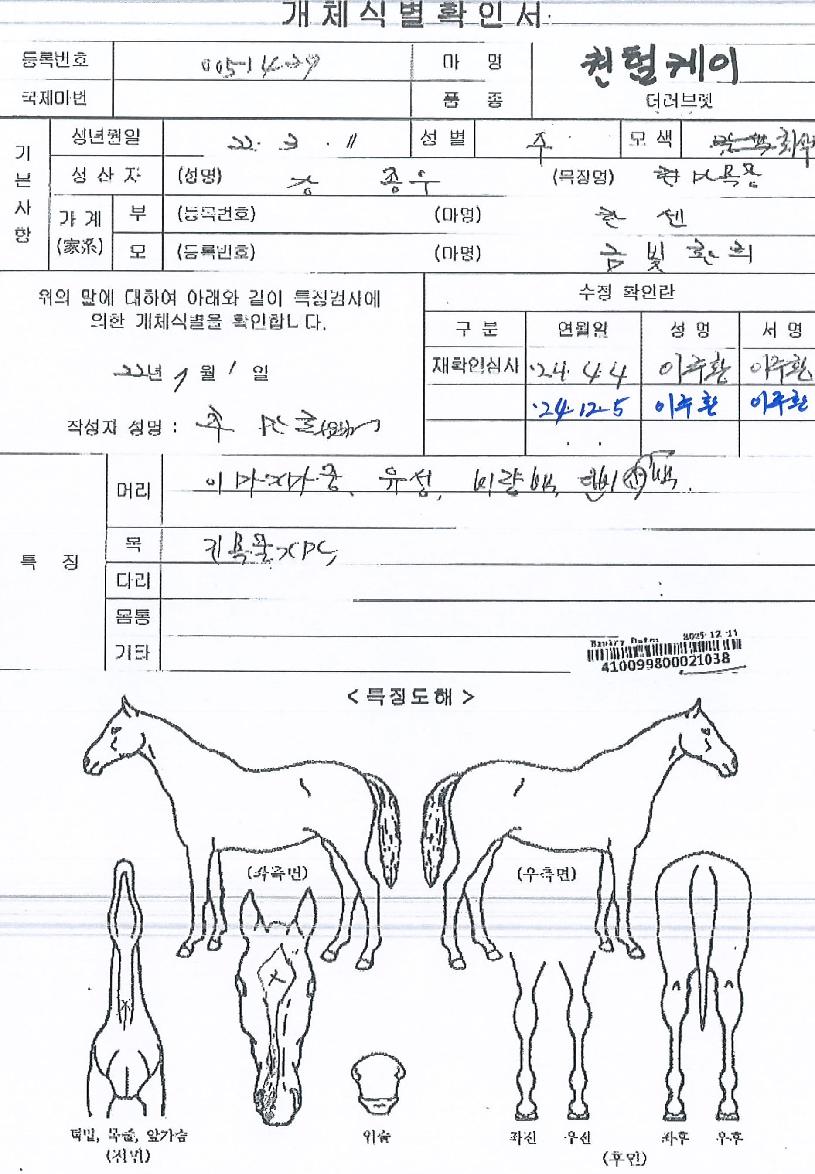 개체식별확인서
등록번호 0051439 마 명 천혈케이
국제마번 품 종 더러브렛
기본사항
생년월일 22. 3. 11 성별 모색
생산자 (성명) 강 종우 (목장명)
가계 (家系) 부 (등록번호) (마명) 한센
모 (등록번호) (마명) 금빛환희
위의 말에 대하여 아래와 같이 특징검사에
의한 개체식별을 확인합니다.
22년 9월 1일
작성자 성명 :
수정 확인란
구 분 연월일 성 명 서 명
재확인심사 '24. 4. 4 이주환 이주환
'24. 12. 5 이주환 이주환
특 징
머리 유성, 비량백,
목
다리
몸통
기타
2025-12-11
410099800021038
< 특징도해 >
(좌측면) (우측면)
턱밑, 목줄, 앞가슴
(전면)
위술
좌전 우전 좌후 우후
(후면)